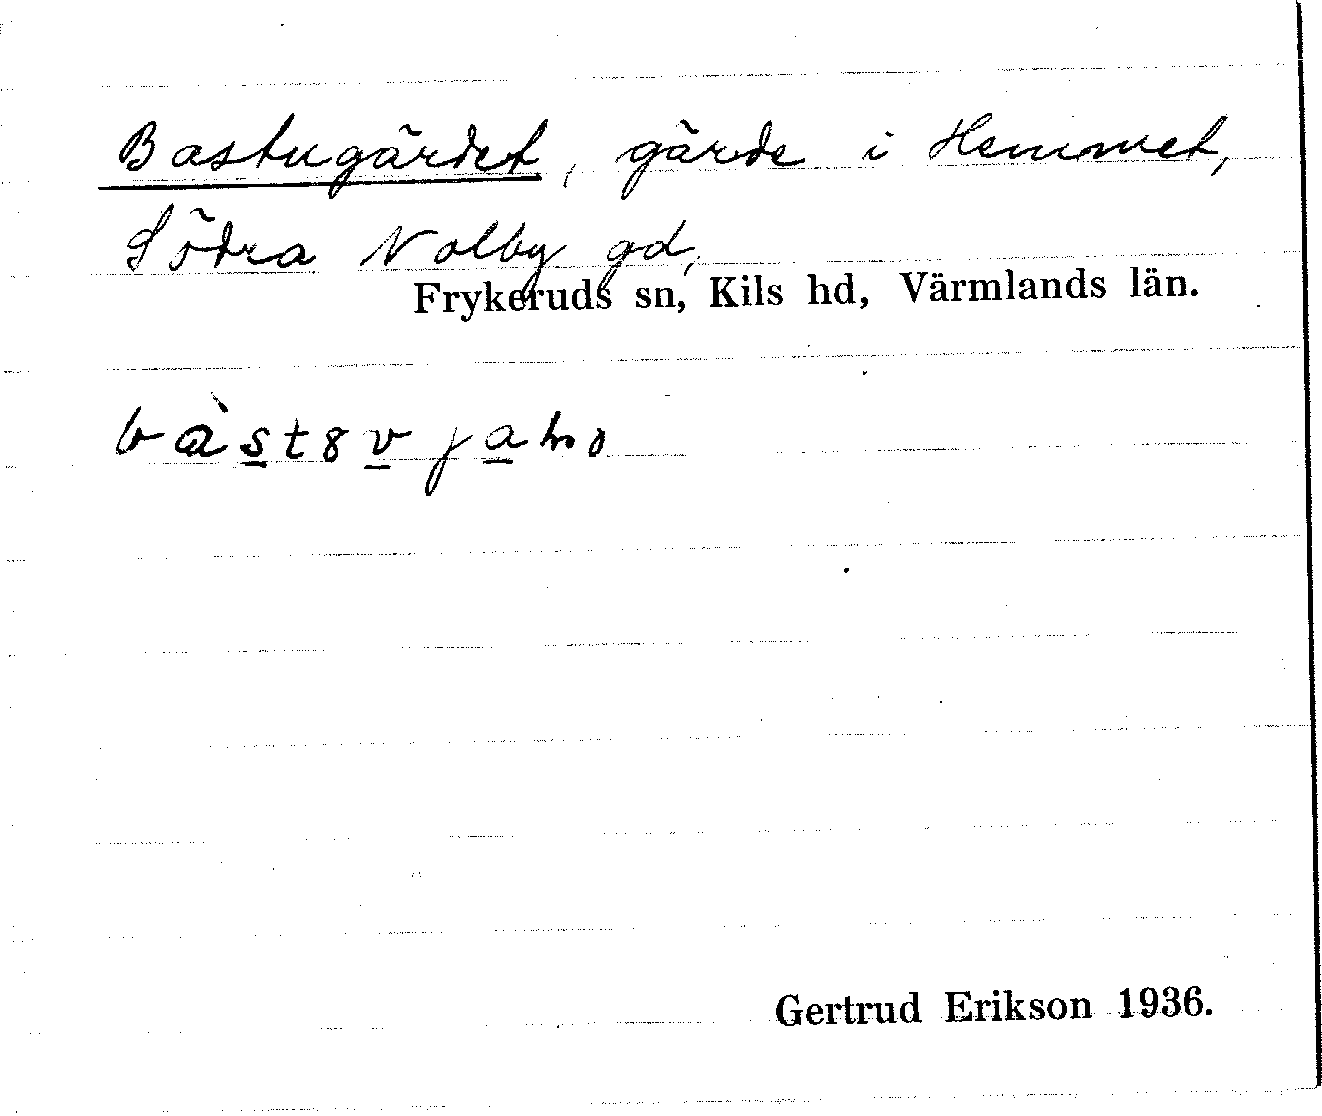 Bastugärdet, gärde i Hemmet,
Södra Nolby gd,
Frykeruds sn, Kils hd, Värmlands län.
Gertrud Erikson 1936.